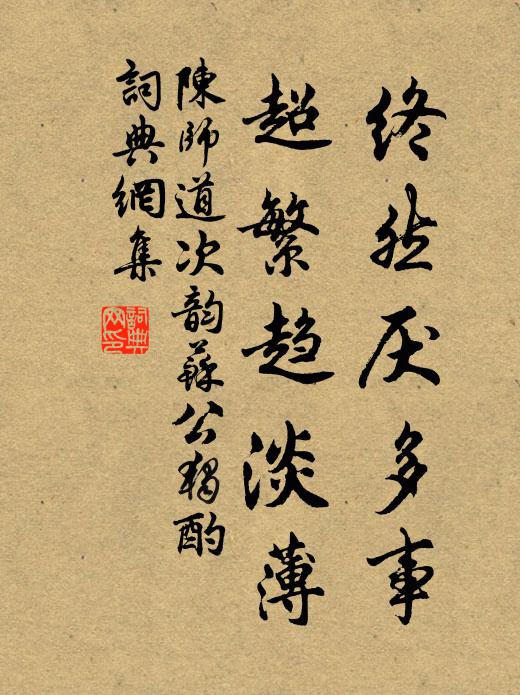 终然厌多事
超繁趋淡薄
陳師道次韵蘇公獨酌
詞典網集
詞典網印